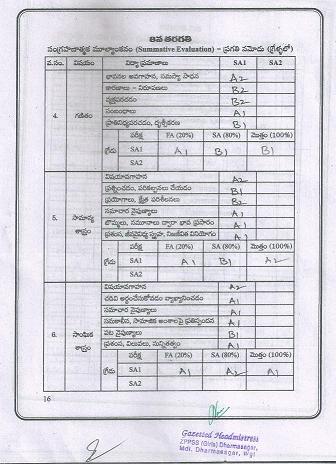 8వ తరగతి
సంగ్రహణాత్మక మూల్యాంకనం (Summative Evaluation) – ప్రగతి నమోదు (గ్రేడ్లలో)
వ.సం. విషయం విద్యా ప్రమాణాలు SA1 SA2
భావనల అవగాహన, సమస్యా సాధన A2
కారణాలు – నిరూపణలు B2
వ్యక్తపరచడం B2
4. గణితం సంబంధాలు A1
ప్రాతినిధ్యపరచడం, దృశ్యీకరణ B1
పరీక్ష FA (20%) SA (80%) మొత్తం (100%)
గ్రేడు SA1 A1 B1 B1
SA2
విషయావగాహన A2
ప్రశ్నించడం, పరికల్పనలు చేయడం B1
ప్రయోగాలు, క్షేత్ర పరిశీలనలు B2
5. సామాన్య శాస్త్రం సమాచార నైపుణ్యాలు A1
బొమ్మలు, నమూనాల ద్వారా భావ ప్రసారం A1
ప్రశంస, జీవవైవిధ్య స్పృహ, నిజజీవిత వినియోగం A1
పరీక్ష FA (20%) SA (80%) మొత్తం (100%)
గ్రేడు SA1 A1 B1 A2
SA2
విషయావగాహన A2
చదివి అర్థంచేసుకోవడం వ్యాఖ్యానించడం A1
సమాచార నైపుణ్యాలు A1
6. సాంఘిక శాస్త్రం సమకాలీన, సామాజిక అంశాలపై ప్రతిస్పందన A1
పట నైపుణ్యాలు B1
ప్రశంస, విలువలు, సున్నితత్వం A1
పరీక్ష FA (20%) SA (80%) మొత్తం (100%)
గ్రేడు SA1 A1 A2 A1
SA2
16
Gazetted Headmistress
ZPPSS (Girls) Dharmasagar,
Mdl. Dharmasagar, Wgl